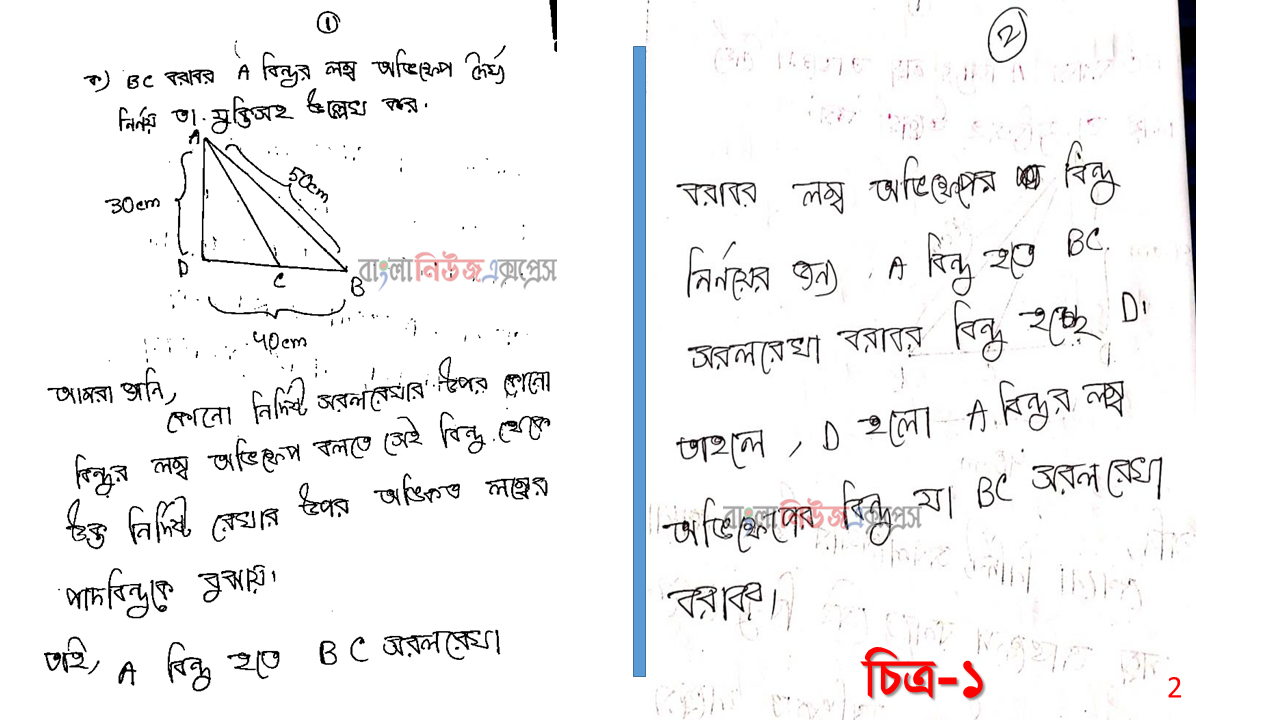 ①
ক) BC বরাবর A বিন্দুর লম্ব অভিক্ষেপ দৈর্ঘ্য
নির্নয় তা যুক্তিসহ উল্লেখ কর।
A
50cm
30cm
D
C
B
40cm
বাংলা নিউজ এক্সপ্রেস
আমরা জানি,
কোনো নির্দিষ্ট সরলরেখার উপর কোনো
বিন্দুর লম্ব অভিক্ষেপ বলতে সেই বিন্দু থেকে
উক্ত নির্দিষ্ট রেখার উপর অঙ্কিত লম্বের
পাদবিন্দুকে বুঝায়।
তাই, A বিন্দু হতে BC সরলরেখা
2
বরাবর লম্ব অভিক্ষেপের বিন্দু
নির্নয়ের জন্য A বিন্দু হতে BC
সরলরেখা বরাবর বিন্দু হচ্ছে D।
তাহলে, D হলো A বিন্দুর লম্ব
অভিক্ষেপের বিন্দু যা BC সরলরেখা
বাংলা নিউজ এক্সপ্রেস
বরাবর।
চিত্র-১
2